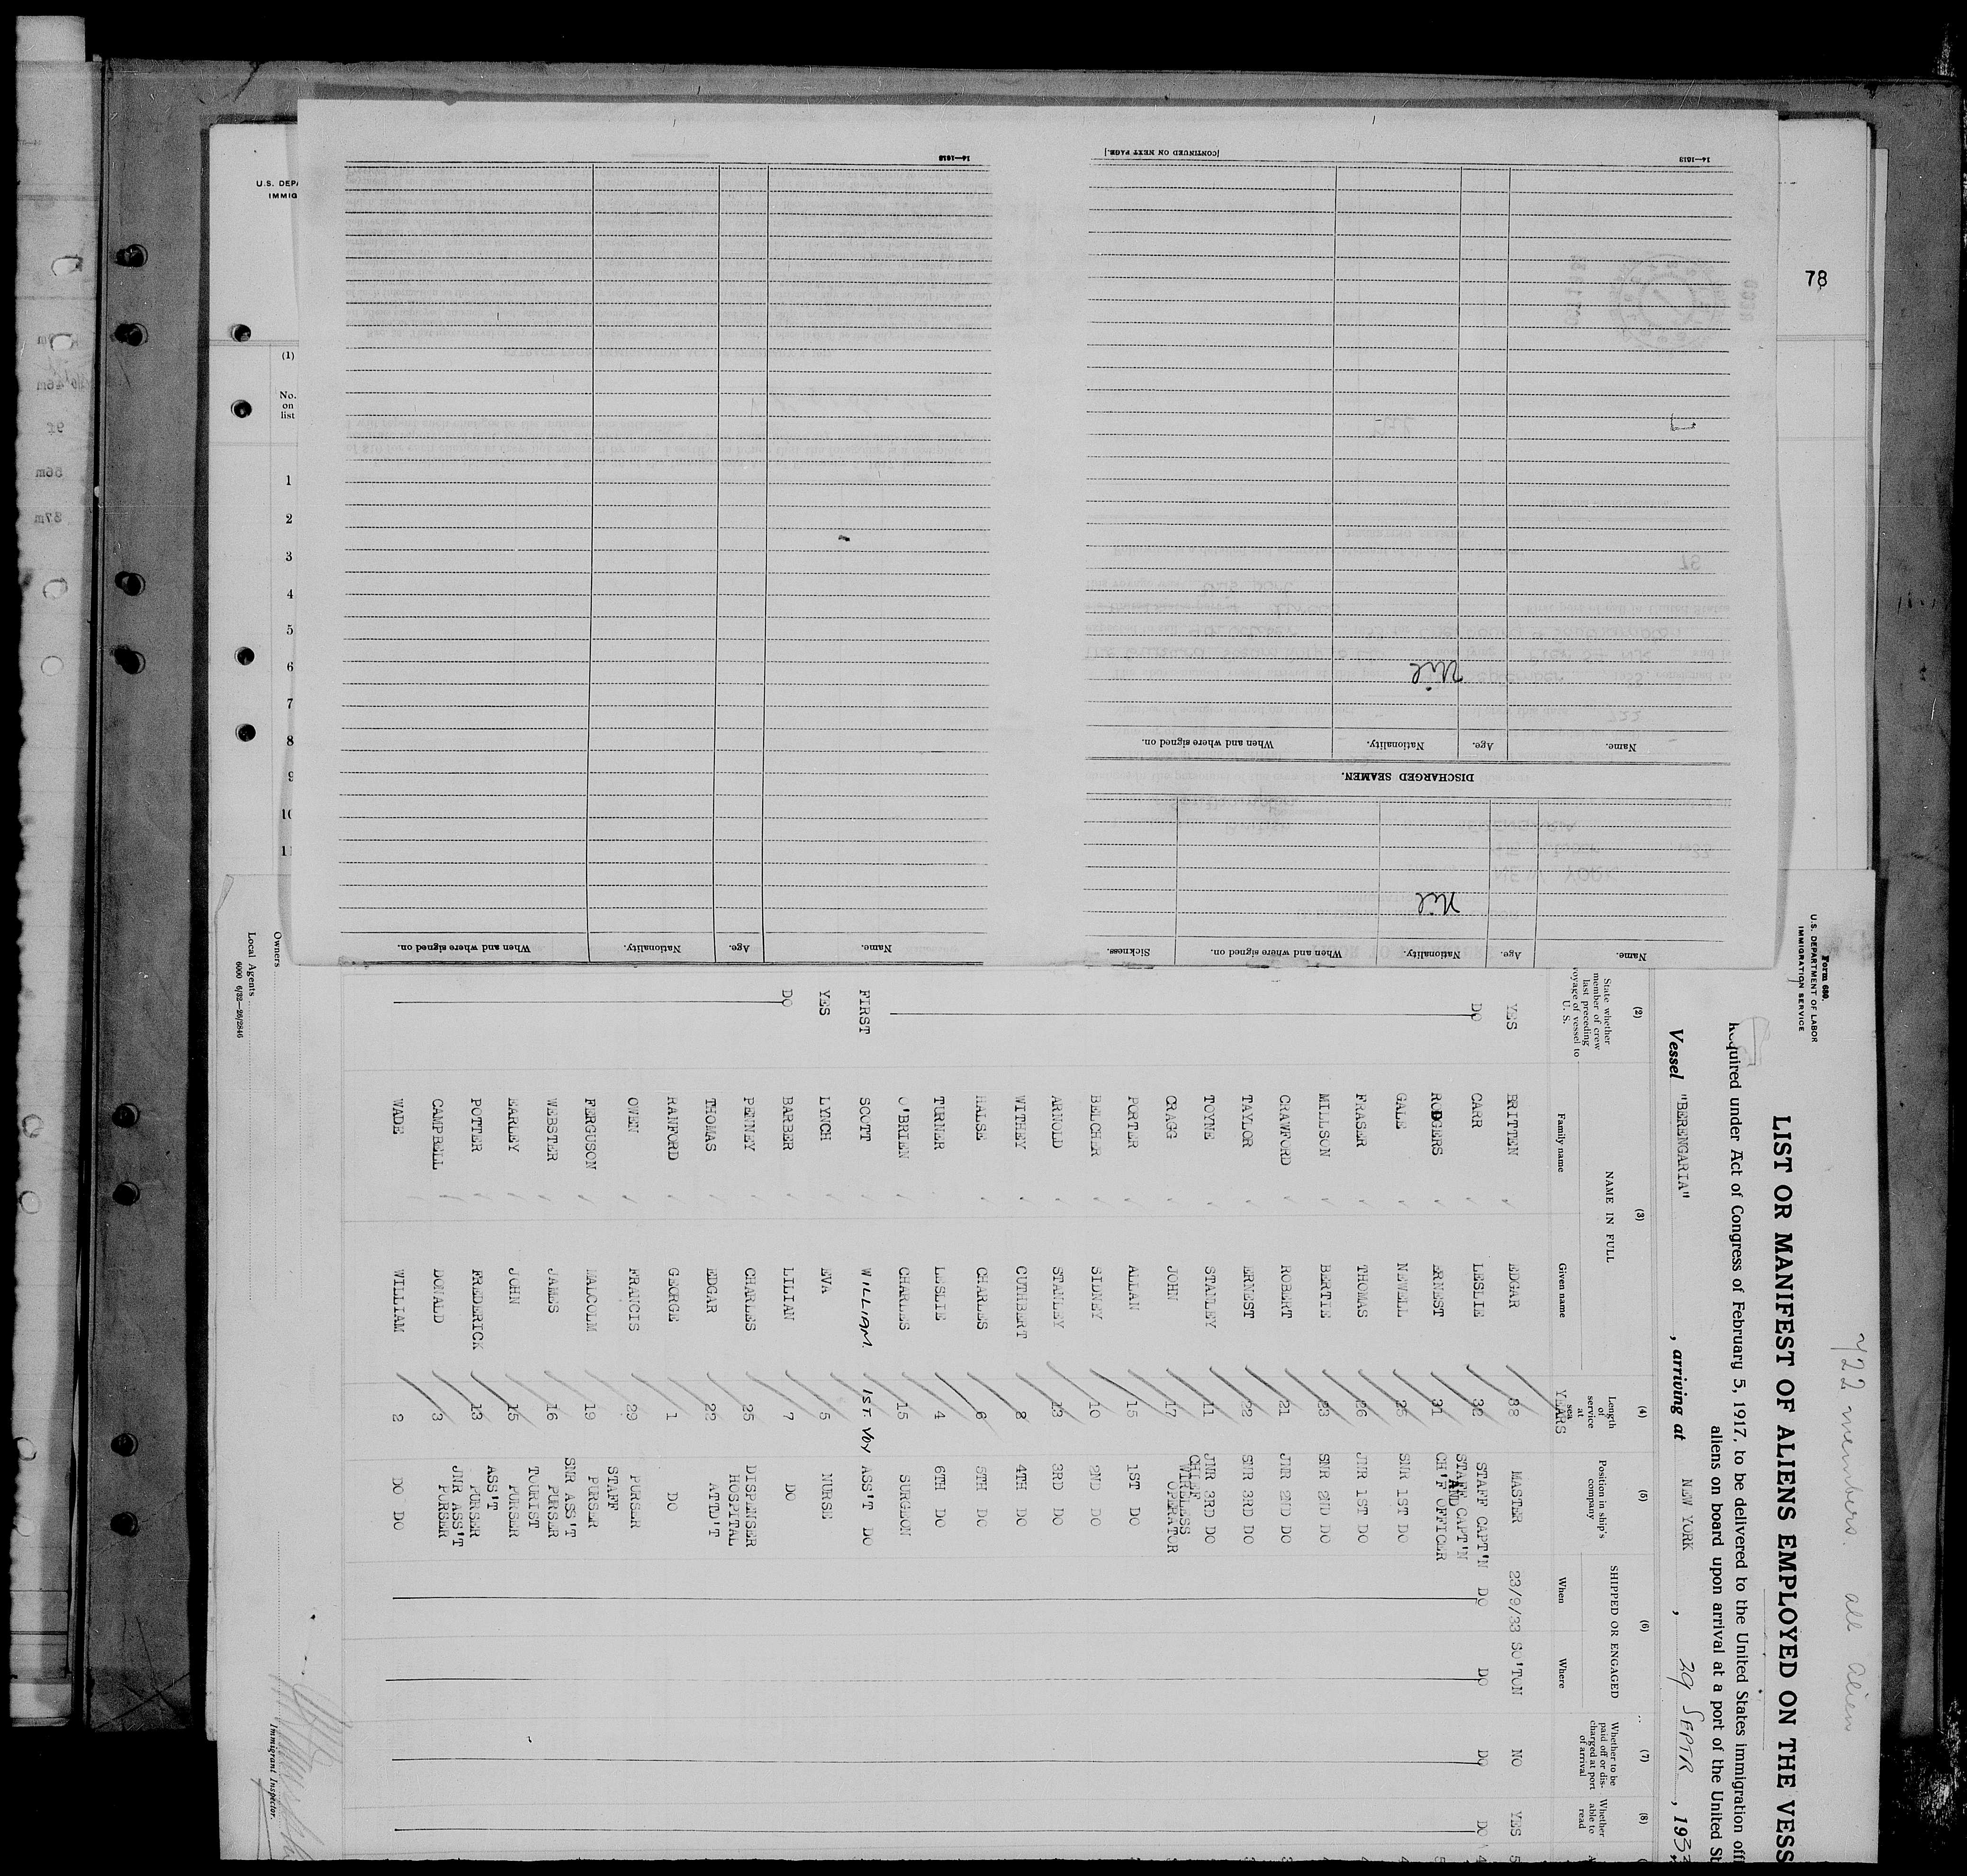 78
U.S. DEPA
IMMIG
(1)
No.
on
list
1
2
3
4
5
6
7
8
9
10
11
Owners
Local Agents
6000 6/32—26/2846
Immigrant Inspector.
Name. Age. Nationality. When and where signed on. Sickness.
Nil
DISCHARGED SEAMEN.
Name. Age. Nationality. When and where signed on.
Nil
14—1513
[CONTINUED ON NEXT PAGE.]
Name. Age. Nationality. When and where signed on.
14—1513
722 members. all alien
Form 680.
U.S. DEPARTMENT OF LABOR
IMMIGRATION SERVICE
LIST OR MANIFEST OF ALIENS EMPLOYED ON THE VESS
Required under Act of Congress of February 5, 1917, to be delivered to the United States immigration off
aliens on board upon arrival at a port of the United St
Vessel "BERENGARIA" , arriving at NEW YORK , 29 SEPTR , 193
(2) (3) (4) (5) (6) (7) (8)
State whether member of crew last preceding voyage of vessel to U. S.
NAME IN FULL
Family name Given name
Length of service at sea
YEARS
Position in ship's company
SHIPPED OR ENGAGED
When Where
Whether to be paid off or discharged at port of arrival
Whether able to read
YES BRITTEN EDGAR 38 MASTER 23/9/33 SO'TON NO YES
DO CARR LESLIE 32 STAFF CAPT'N DO DO DO DO
RODGERS ERNEST 31 STAFF CAPT'N AND CH'F OFFICER
GALE NEWELL 25 SNR 1ST DO
FRASER THOMAS 26 JNR 1ST DO
MILLSON BERTIE 23 SNR 2ND DO
CRAWFORD ROBERT 21 JNR 2ND DO
TAYLOR ERNEST 22 SNR 3RD DO
TOYNE STANLEY 11 JNR 3RD DO
CRAGG JOHN 17 CHIEF WIRELESS OPERATOR
PORTER ALLAN 15 1ST DO
BELCHER SIDNEY 10 2ND DO
ARNOLD STANLEY 13 3RD DO
WITHEY CUTHBERT 8 4TH DO
HALSE CHARLES 6 5TH DO
TURNER LESLIE 4 6TH DO
O'BRIEN CHARLES 15 SURGEON
FIRST SCOTT WILLIAM 1ST. VOY ASS'T DO
YES LYNCH EVA 5 NURSE
DO BARBER LILIAN 7 DO
PENNEY CHARLES 25 DISPENSER
THOMAS EDGAR 22 HOSPITAL ATTD'T
RANFORD GEORGE 1 DO
OWEN FRANCIS 29 PURSER
FERGUSON MALCOLM 19 STAFF PURSER
WEBSTER JAMES 16 SNR ASS'T PURSER
EARLEY JOHN 15 TOURIST PURSER
POTTER FREDERICK 13 ASS'T PURSER
CAMPBELL DONALD 3 JNR ASS'T PURSER
WADE WILLIAM 2 DO DO